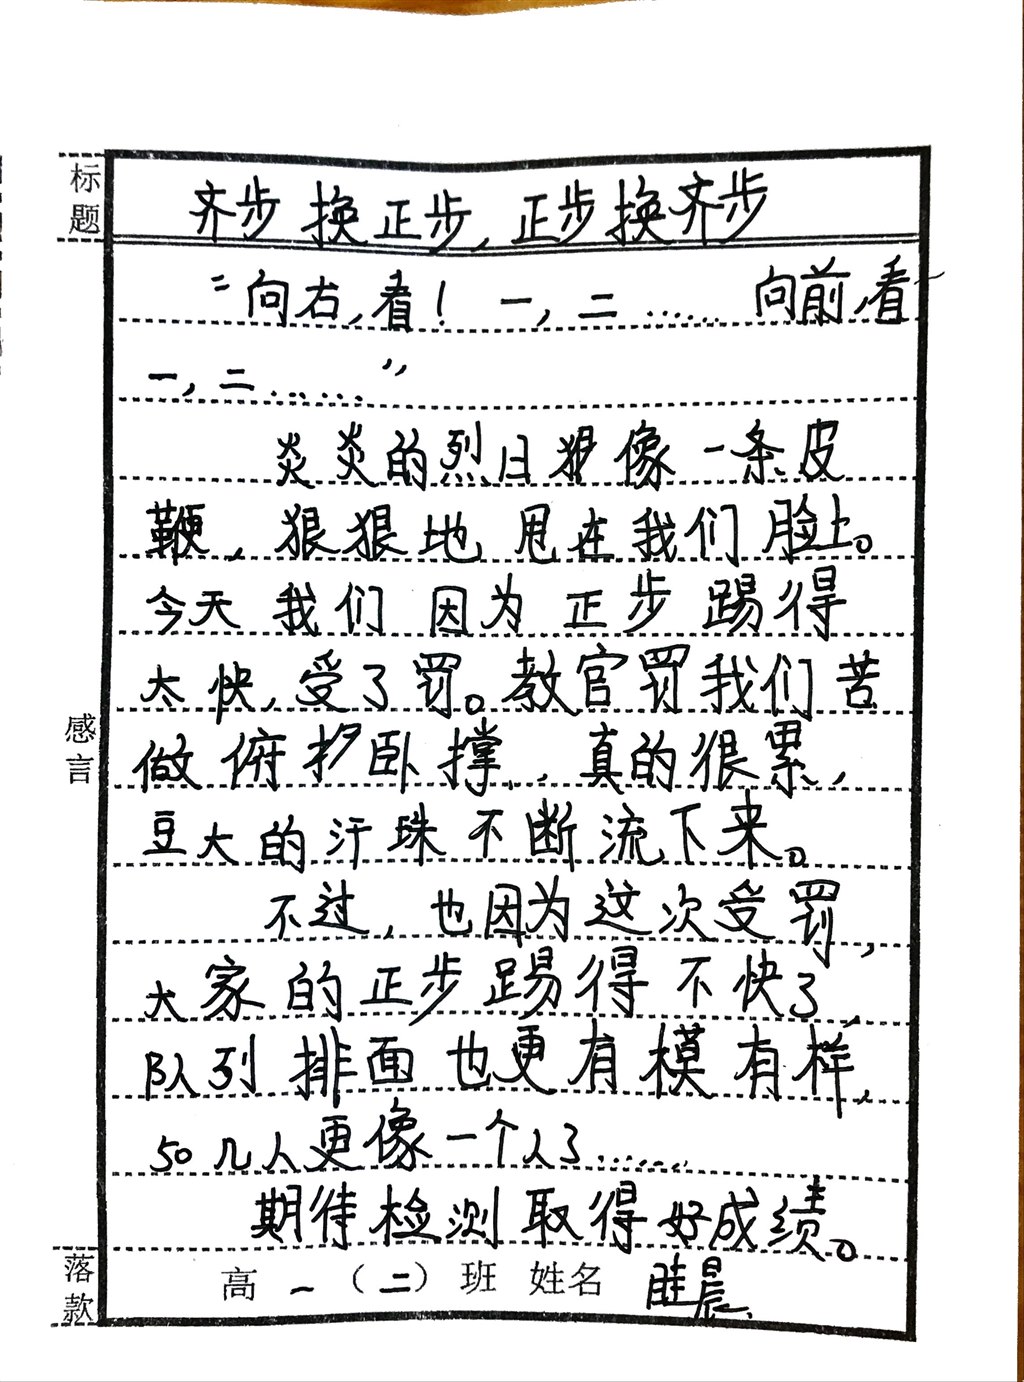 标题
齐步换正步，正步换齐步
“向右，看！ 一，二…… 向前，看
一，二……”
炎炎的烈日 像一条皮
鞭，狠狠地甩在我们脸上。
今天我们因为正步踢得
太快，受了罚。教官罚我们苦
做俯 卧撑，真的很累，
豆大的汗珠不断流下来。
不过，也因为这次受罚，
大家的正步踢得不快了，
队列排面也更有模有样，
50几人更像一个人了……
期待检测取得好成绩。
感言
落款
高一（二）班 姓名 眭晨